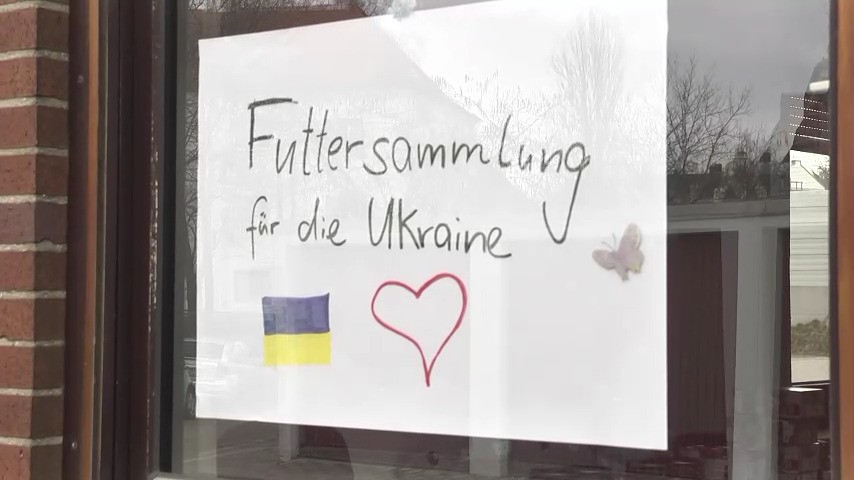 Futtersammlung
für die Ukraine